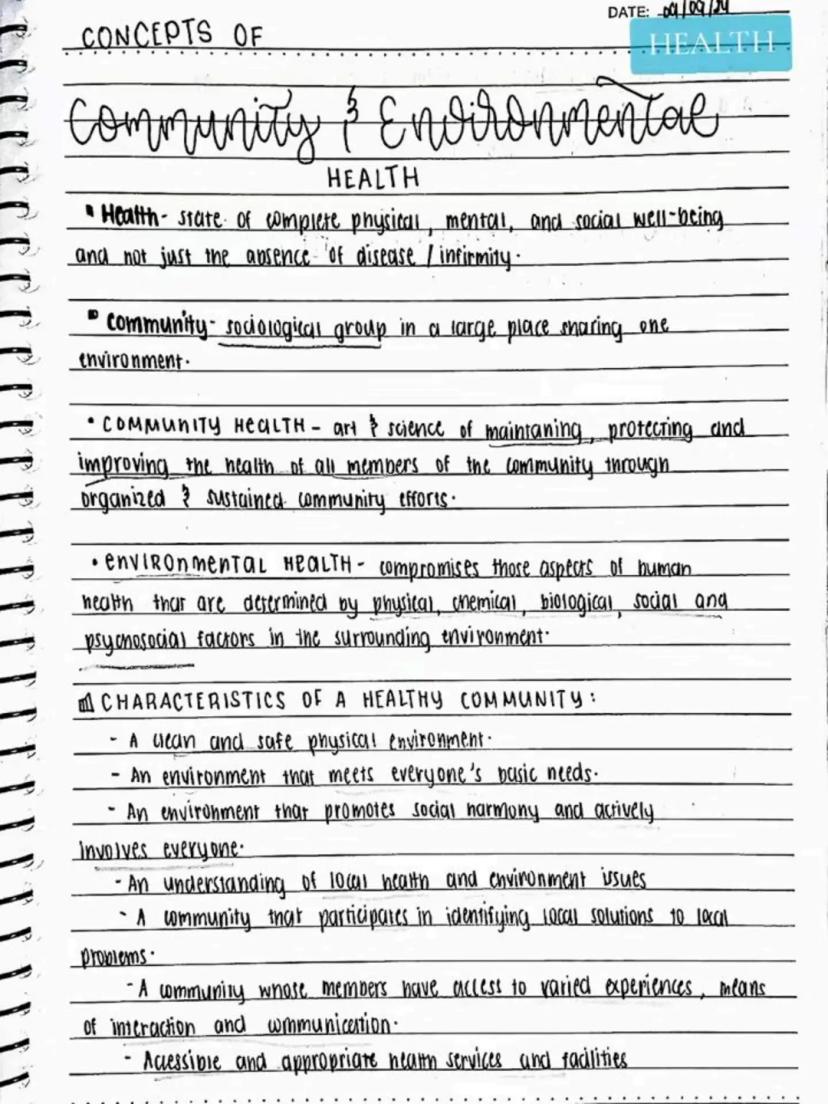 DATE: 09/09/24
CONCEPTS OF
HEALTH
Community & Environmental
HEALTH
Health - state of complete physical, mental, and social well-being
and not just the absence of disease / infirmity.
Community - sociological group in a large place sharing one
environment.
• COMMUNITY HEALTH - art & science of maintaning, protecting and
improving the health of all members of the community through
organized & sustained community efforts.
• ENVIRONMENTAL HEALTH - compromises those aspects of human
health that are determined by physical, chemical, biological, social and
psychosocial factors in the surrounding environment.
CHARACTERISTICS OF A HEALTHY COMMUNITY:
- A clean and safe physical environment.
- An environment that meets everyone's basic needs.
- An environment that promotes social harmony and actively
involves everyone.
- An understanding of local health and environment issues
- A community that participates in identifying local solutions to local
problems.
- A community whose members have access to varied experiences, means
of interaction and communication.
- Accessible and appropriate health services and facilities